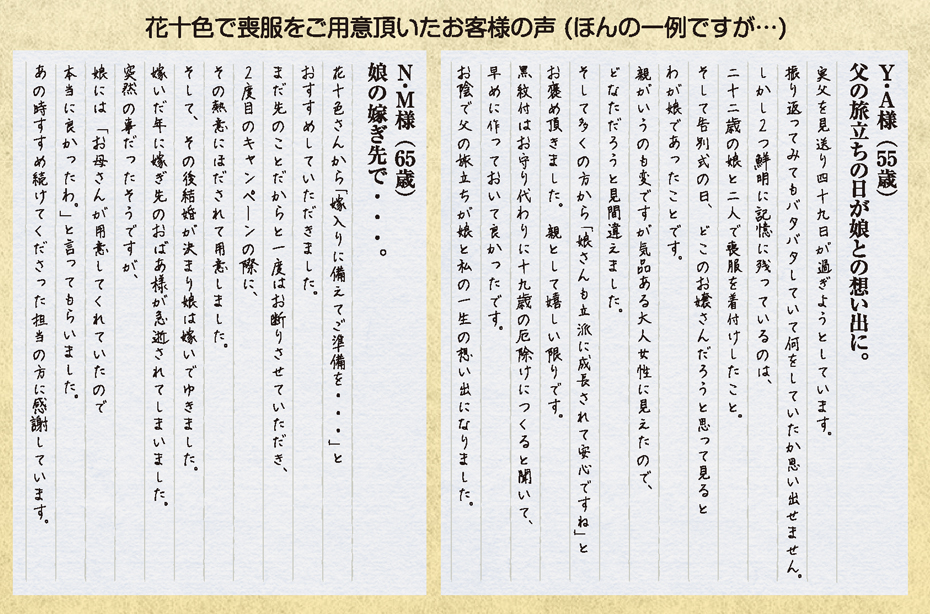 花十色で喪服をご用意頂いたお客様の声 (ほんの一例ですが…)
Y・A様（55歳）
父の旅立ちの日が娘との想い出に。
実父を見送り四十九日が過ぎようとしています。
振り返ってみてもバタバタしていて何をしていたか思い出せません。
しかし2つ鮮明に記憶に残っているのは、
二十二歳の娘と二人で喪服を着付けしたこと。
そして告別式の日、どこのお嬢さんだろうと思って見ると
わが娘であったことです。
親がいうのも変ですが気品ある大人女性に見えたので、
どなただろうと見間違えました。
そして多くの方から「娘さんも立派に成長されて安心ですね」と
お褒め頂きました。親として嬉しい限りです。
黒紋付はお守り代わりに十九歳の厄除けにつくると聞いて、
早めに作っておいて良かったです。
お陰で父の旅立ちが娘と私の一生の想い出になりました。
N・M様（65歳）
娘の嫁ぎ先で・・・。
花十色さんから「嫁入りに備えてご準備を・・・」と
おすすめしていただきました。
まだ先のことだからと一度はお断りさせていただき、
2度目のキャンペーンの際に、
その熱意にほだされて用意しました。
そして、その後結婚が決まり娘は嫁いでゆきました。
嫁いだ年に嫁ぎ先のおばあ様が急逝されてしまいました。
突然の事だったそうですが、
娘には「お母さんが用意してくれていたので
本当に良かったわ。」と言ってもらいました。
あの時すすめ続けてくださった担当の方に感謝しています。